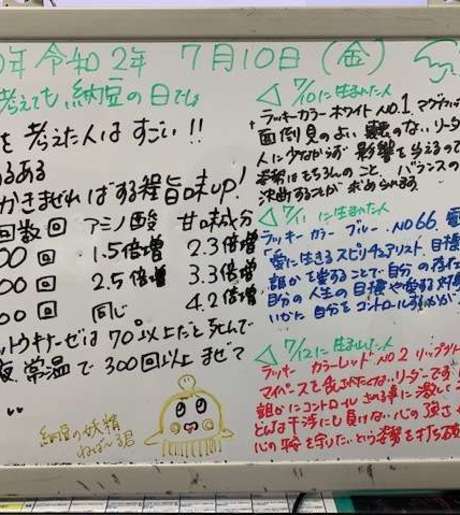 0年 令和2年 7月10日(金)
考えても 納豆の日でしょ
を 考えた人は すごい!!
るある
かきまぜればする程旨味up!
回数回 アミノ酸 甘味成分
00回 1.5倍増 2.3倍増
00回 2.5倍増 3.3倍増
00回 同じ 4.2倍増
ットウキナーゼは 70°以上だと死んで
常温で 300回以上 まぜて
納豆の妖精
ねば〜る君
7/10に生まれた人
ラッキーカラーホワイト NO.1
面倒見のよい のない リーダ
人に少なからず 影響を与えるので
姿勢はもちろんのこと、バランスの
決断することが 求められます
7/11 に生まれた人
ラッキーカラー ブルー NO.66
「愛に生きるスピリチュアリスト 目標
誰かを愛することで自分の存在
自分の人生の目標や愛する対象
いかに 自分を コントロールするかが
7/12に生まれた人
ラッキーカラーレッド NO.2
マイペースを乱されたくないリーダーです
誰かにコントロールされる事に激しく
どんな干渉にも負けない心の強さ
心の を守りたいという姿勢を打ち破